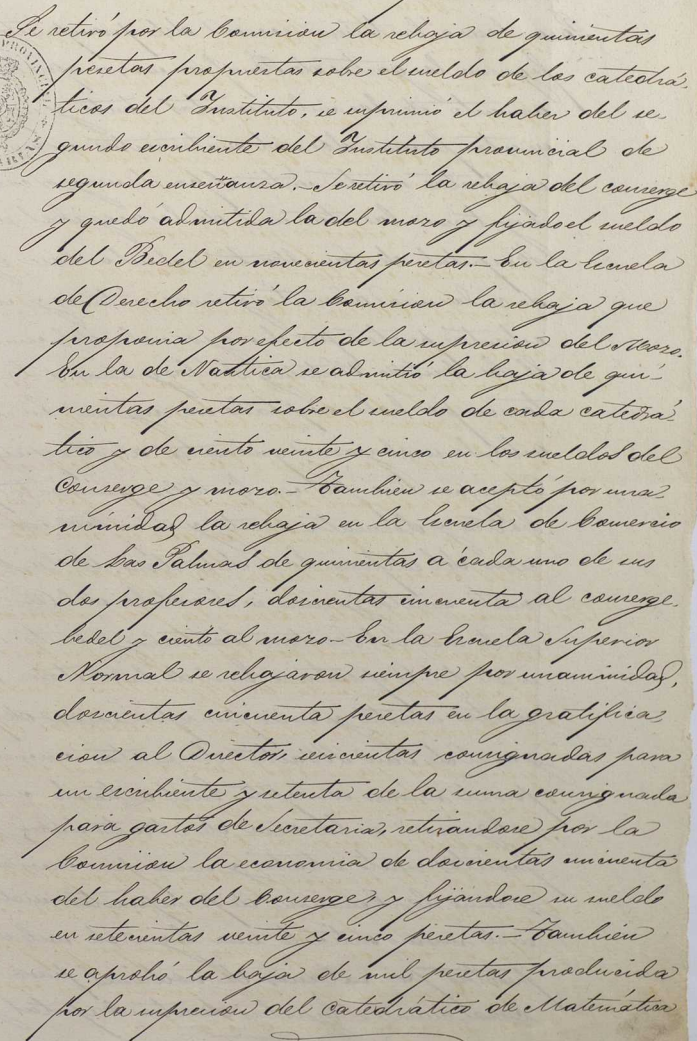 Se retiró por la Comision la rebaja de quinientas
pesetas propuestas sobre el sueldo de los catedrá-
ticos del Instituto, se suprimió el haber del se-
gundo escribiente del Instituto provincial de
segunda enseñanza.- Se retiró la rebaja del conserge
y quedó admitida la del mozo y fijado el sueldo
del Bedel en novecientas pesetas.- En la Escuela
de Derecho retiró la Comision la rebaja que
proponia por efecto de la supresion del Mozo.
En la de Nautica se admitió la baja de qui-
nientas pesetas sobre el sueldo de cada catedrá-
tico y de ciento veinte y cinco en los sueldos del
Conserge y mozo.- Tambien se aceptó por una-
nimidad la rebaja en la Escuela de Comercio
de Las Palmas de quinientas a cada uno de sus
dos profesores, doscientas cincuenta al conserge-
bedel y ciento al mozo- En la Escuela Superior
Normal se rebajaron siempre por unaminidad,
doscientas cincuenta pesetas en la gratifica-
cion al Director, seiscientas consignadas para
un escribiente y setenta de la suma consignada
para gastos de Secretaria, retirandose por la
Comision la economia de doscientas cincuenta
del haber del Conserge, y fijándose su sueldo
en setecientas veinte y cinco pesetas.- Tambien
se aprobó la baja de mil pesetas producida
por la supresion del catedrático de Matemática